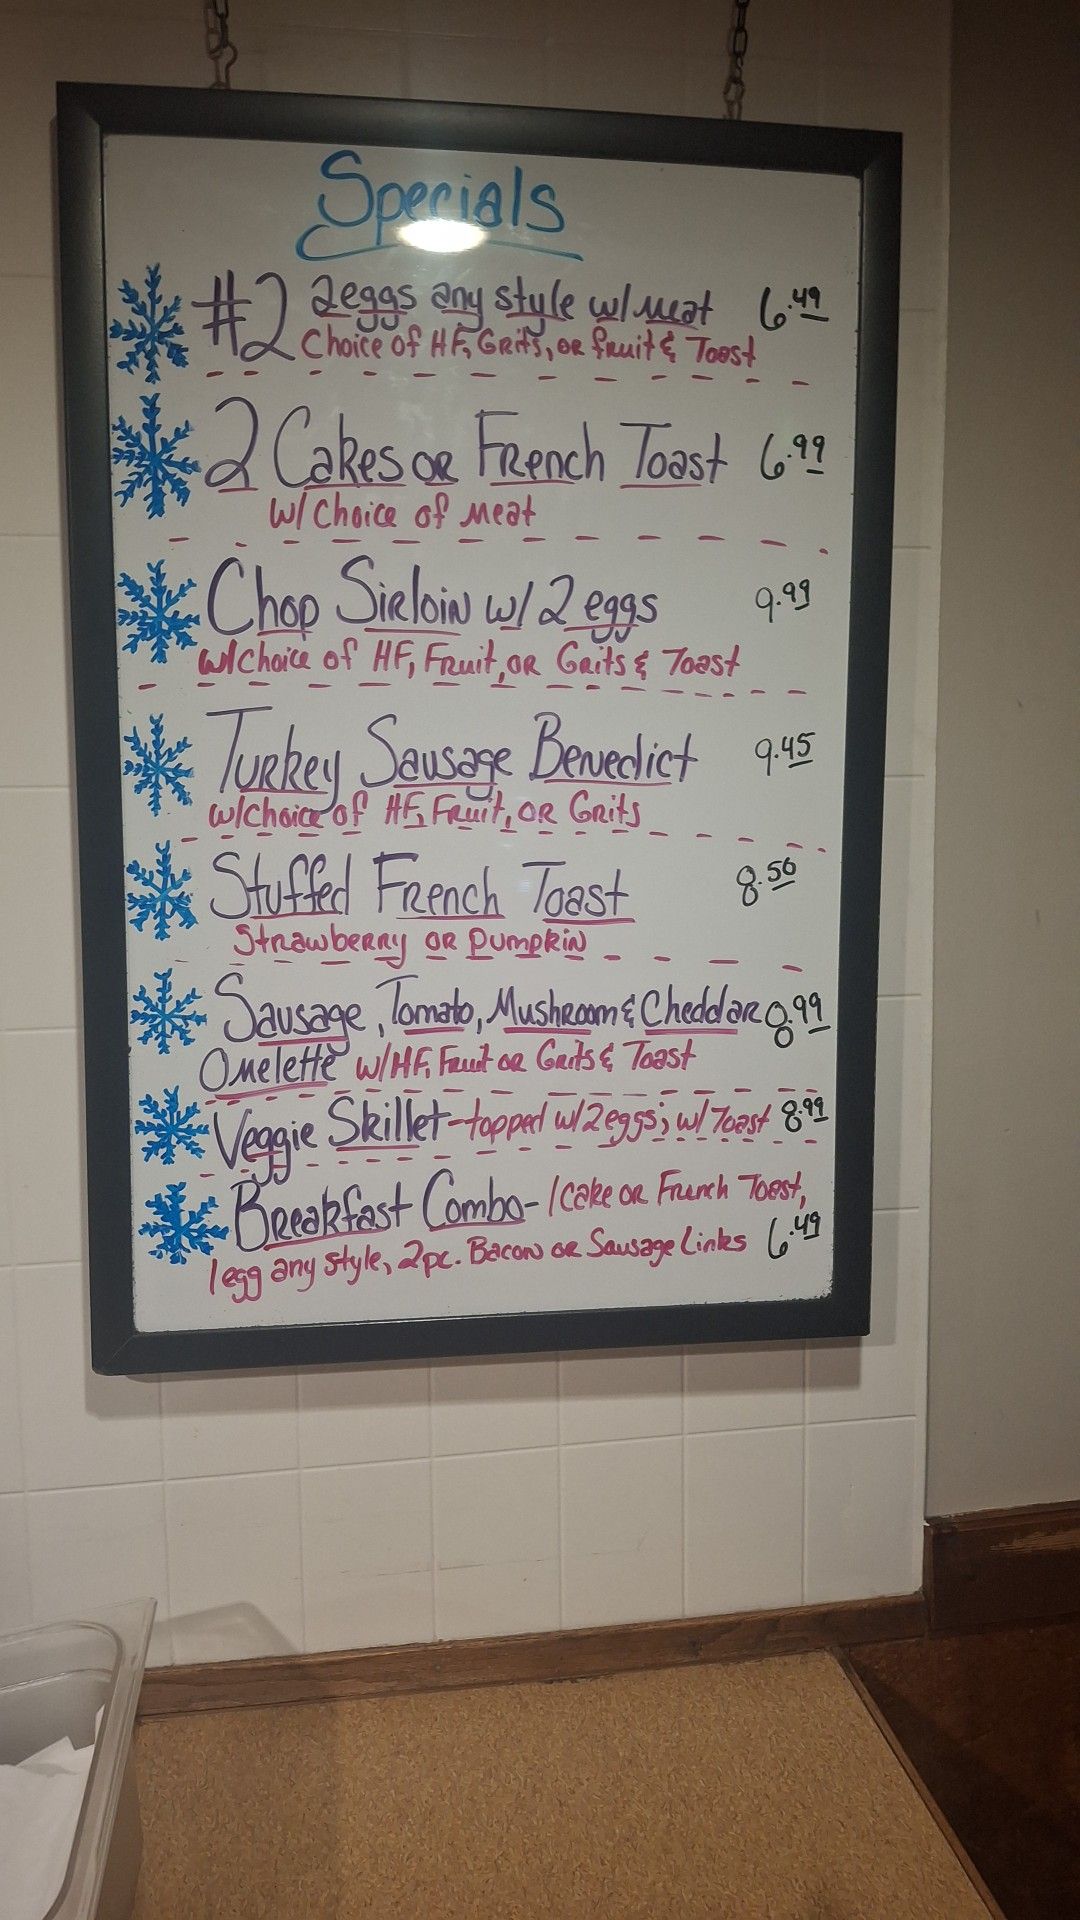 Specials
#2 2eggs any style w/ Meat 6.49
Choice of HF, Grits, or fruit & Toast
2 Cakes or French Toast 6.99
w/ Choice of Meat
Chop Sirloin w/ 2 eggs 9.99
w/Choice of HF, Fruit, or Grits & Toast
Turkey Sausage Benedict 9.45
w/Choice of HF, Fruit, or Grits
Stuffed French Toast 8.50
Strawberry or Pumpkin
Sausage, Tomato, Mushroom & Cheddar 8.99
Omelette w/HF, Fruit or Grits & Toast
Veggie Skillet - topped w/2eggs; w/ Toast 8.99
Breakfast Combo - 1 Cake or French Toast,
1 egg any style, 2pc. Bacon or Sausage Links 6.49